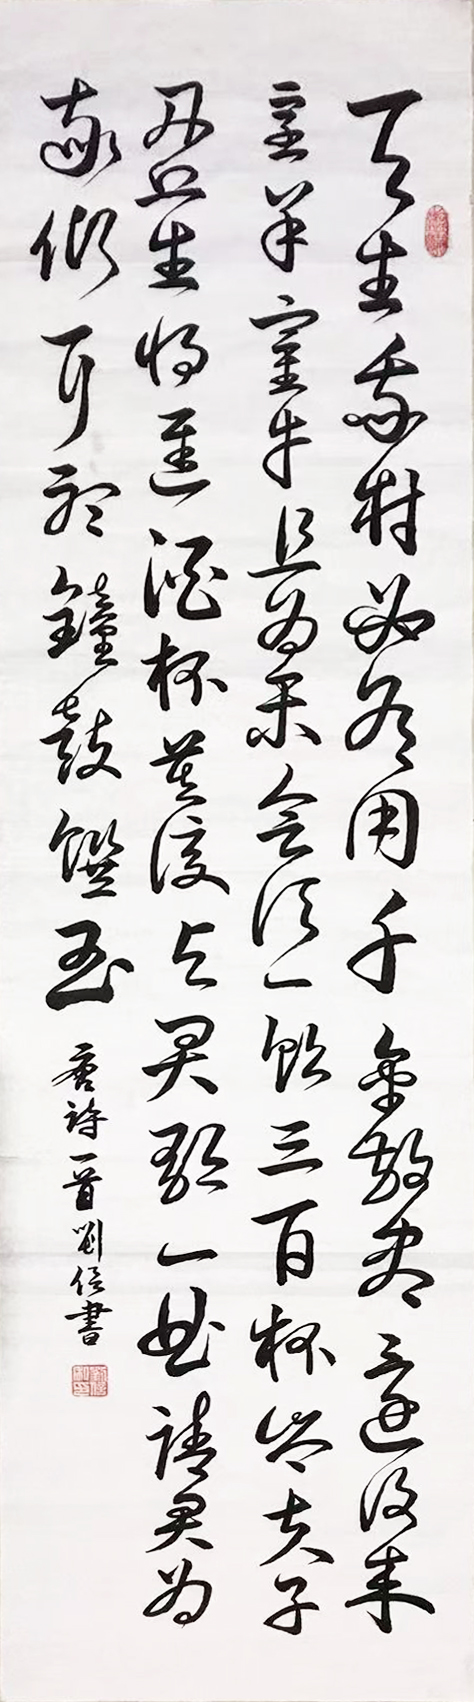 天生我材必有用千金散盡還復来
烹羊宰牛且為樂會須一飲三百杯岑夫子
丹丘生將進酒杯莫停与君歌一曲請君為
我側耳聽鐘鼓饌玉
唐詩一首劉信書